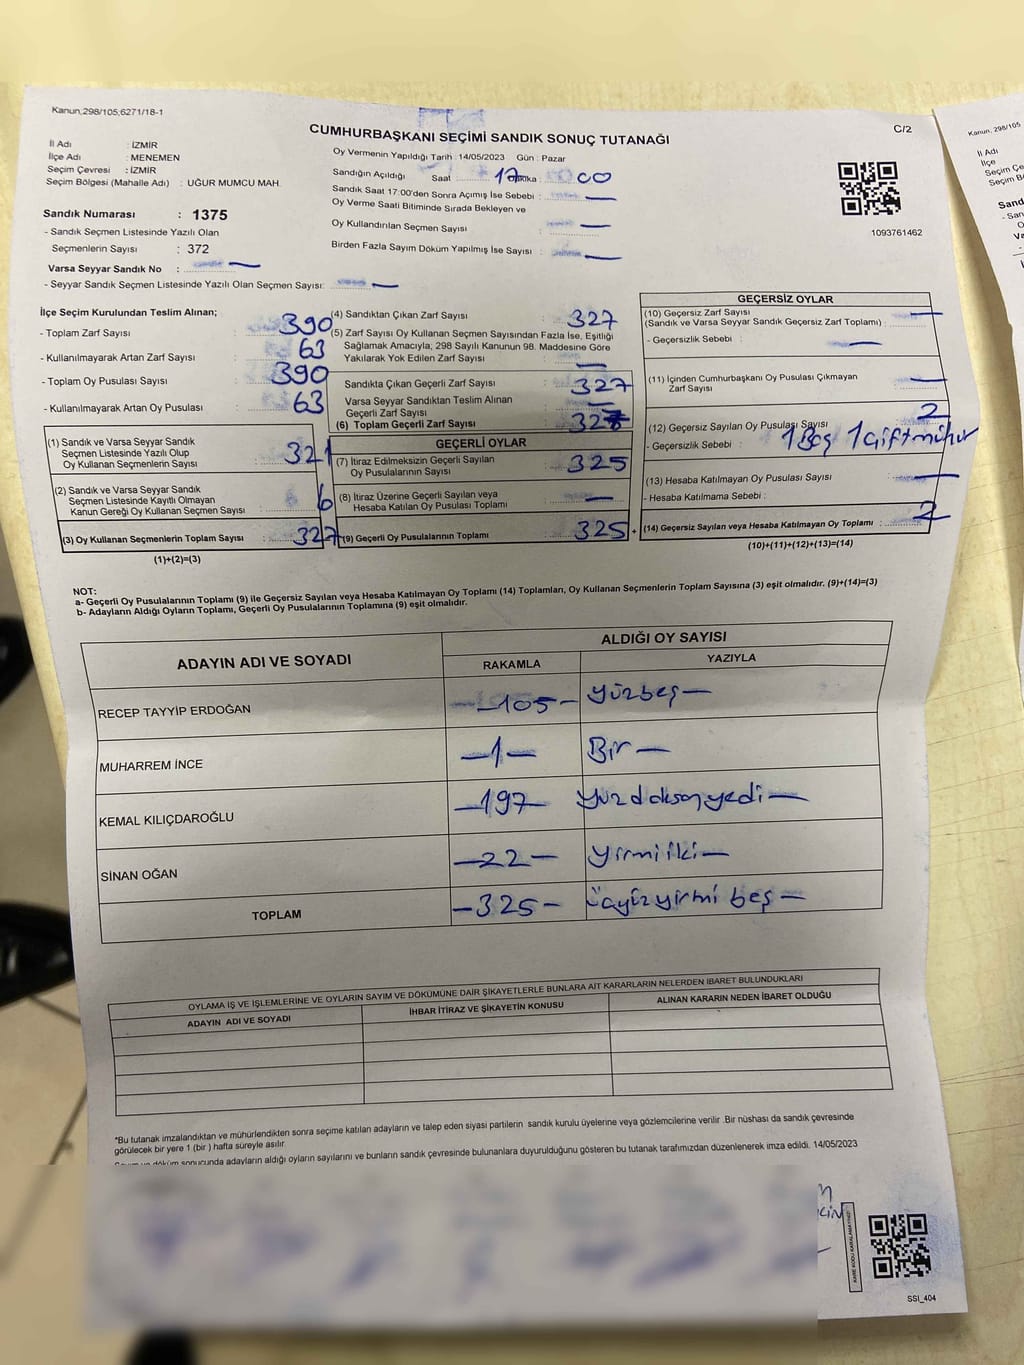 Kanun;298/105;6271/18-1
C/2
CUMHURBAŞKANI SEÇİMİ SANDIK SONUÇ TUTANAĞI
İl Adı : İZMİR
İlçe Adı : MENEMEN
Seçim Çevresi : İZMİR
Seçim Bölgesi (Mahalle Adı) : UĞUR MUMCU MAH.
Sandık Numarası : 1375
- Sandık Seçmen Listesinde Yazılı Olan
Seçmenlerin Sayısı : 372
Varsa Seyyar Sandık No : —
- Seyyar Sandık Seçmen Listesinde Yazılı Olan Seçmen Sayısı: —
Oy Vermenin Yapıldığı Tarih :14/05/2023 Gün : Pazar
Sandığın Açıldığı Saat 17 Dakika : 00
Sandık Saat 17:00'den Sonra Açımış İse Sebebi : —
Oy Verme Saati Bitiminde Sırada Bekleyen ve
Oy Kullandırılan Seçmen Sayısı : —
Birden Fazla Sayım Döküm Yapılmış İse Sayısı : —
1093761462
İlçe Seçim Kurulundan Teslim Alınan;
- Toplam Zarf Sayısı : 390
- Kullanılmayarak Artan Zarf Sayısı : 63
- Toplam Oy Pusulası Sayısı : 390
- Kullanılmayarak Artan Oy Pusulası : 63
(1) Sandık ve Varsa Seyyar Sandık
Seçmen Listesinde Yazılı Olup
Oy Kullanan Seçmenlerin Sayısı : 321
(2) Sandık ve Varsa Seyyar Sandık
Seçmen Listesinde Kayıtlı Olmayan
Kanun Gereği Oy Kullanan Seçmen Sayısı : 6
(3) Oy Kullanan Seçmenlerin Toplam Sayısı : 327
(1)+(2)=(3)
(4) Sandıktan Çıkan Zarf Sayısı : 327
(5) Zarf Sayısı Oy Kullanan Seçmen Sayısından Fazla İse, Eşitliği
Sağlamak Amacıyla; 298 Sayılı Kanunun 98. Maddesine Göre
Yakılarak Yok Edilen Zarf Sayısı : —
Sandıkta Çıkan Geçerli Zarf Sayısı : 327
Varsa Seyyar Sandıktan Teslim Alınan
Geçerli Zarf Sayısı : —
(6) Toplam Geçerli Zarf Sayısı : 327
GEÇERLİ OYLAR
(7) İtiraz Edilmeksizin Geçerli Sayılan
Oy Pusulalarının Sayısı : 325
(8) İtiraz Üzerine Geçerli Sayılan veya
Hesaba Katılan Oy Pusulası Toplamı : —
(9) Geçerli Oy Pusulalarının Toplamı : 325
GEÇERSİZ OYLAR
(10) Geçersiz Zarf Sayısı
(Sandık ve Varsa Seyyar Sandık Geçersiz Zarf Toplamı) : —
- Geçersizlik Sebebi : —
(11) İçinden Cumhurbaşkanı Oy Pusulası Çıkmayan
Zarf Sayısı : —
(12) Geçersiz Sayılan Oy Pusulası Sayısı : 2
- Geçersizlik Sebebi : 1 Boş 1 Çift mühür
(13) Hesaba Katılmayan Oy Pusulası Sayısı : —
- Hesaba Katılmama Sebebi :
(14) Geçersiz Sayılan veya Hesaba Katılmayan Oy Toplamı : 2
(10)+(11)+(12)+(13)=(14)
NOT:
a- Geçerli Oy Pusulalarının Toplamı (9) ile Geçersiz Sayılan veya Hesaba Katılmayan Oy Toplamı (14) Toplamları, Oy Kullanan Seçmenlerin Toplam Sayısına (3) eşit olmalıdır. (9)+(14)=(3)
b- Adayların Aldığı Oyların Toplamı, Geçerli Oy Pusulalarının Toplamına (9) eşit olmalıdır.
ADAYIN ADI VE SOYADI ALDIĞI OY SAYISI
RAKAMLA YAZIYLA
RECEP TAYYİP ERDOĞAN —105— yüzbeş—
MUHARREM İNCE —1— Bir—
KEMAL KILIÇDAROĞLU —197— yüzdoksanyedi—
SİNAN OĞAN —22— yirmiiki—
TOPLAM —325— üçyüzyirmi beş—
OYLAMA İŞ VE İŞLEMLERİNE VE OYLARIN SAYIM VE DÖKÜMÜNE DAİR ŞİKAYETLERLE BUNLARA AİT KARARLARIN NELERDEN İBARET BULUNDUKLARI
ADAYIN ADI VE SOYADI İHBAR İTİRAZ VE ŞİKAYETİN KONUSU ALINAN KARARIN NEDEN İBARET OLDUĞU
*Bu tutanak imzalandıktan ve mühürlendikten sonra seçime katılan adayların ve talep eden siyasi partilerin sandık kurulu üyelerine veya gözlemcilerine verilir .Bir nüshası da sandık çevresinde
görülecek bir yere 1 (bir ) hafta süreyle asılır.
Sayım ve döküm sonucunda adayların aldığı oyların sayılarını ve bunların sandık çevresinde bulunanlara duyurulduğunu gösteren bu tutanak tarafımızdan düzenlenerek imza edildi. 14/05/2023
KARE KODU KARALAMAYINIZ!
SSI_404
Kanun, 298/105
İl Adı
İlçe